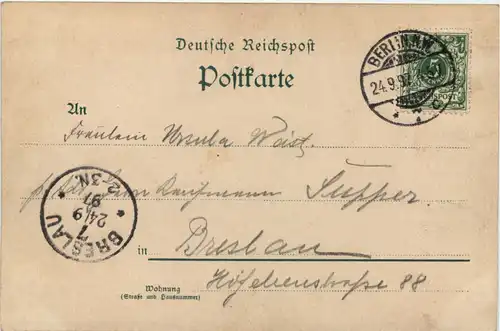 Deutsche Reichspost
Postkarte
BERLIN, N.W.
24.9.97
An
Fräulein Ursula Wäst.
Kaufmann Supper
BRESLAU
1
24/9
97
2-3N.
in Breslau
Höfchenstraße 88
Wohnung
(Straße und Hausnummer)